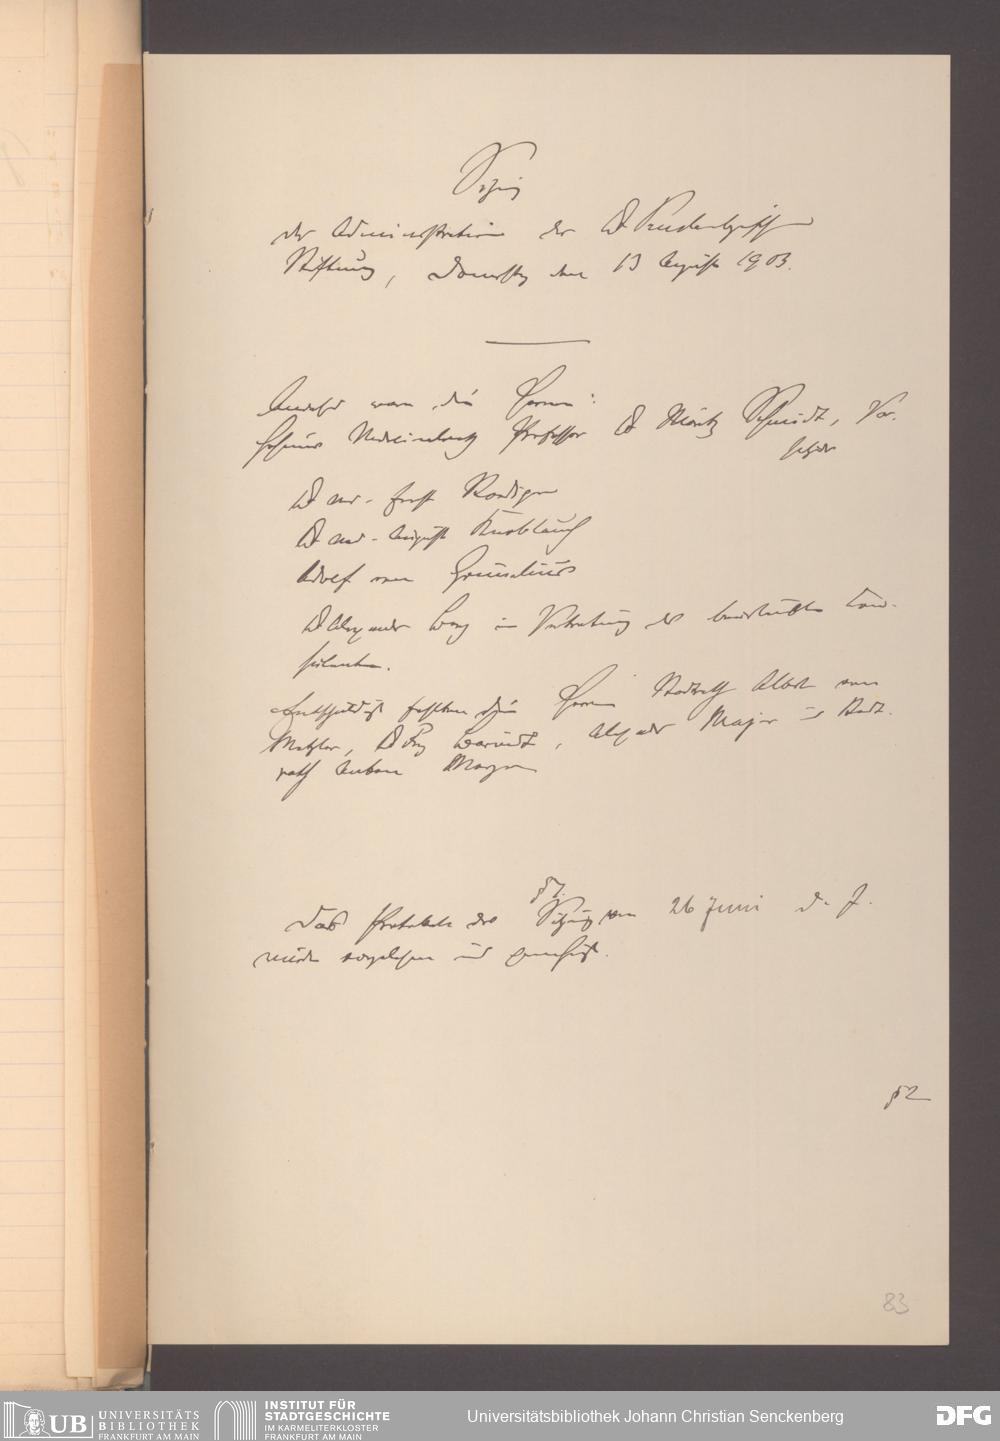 Sitzung
der Administration der Dr Senckenbergischen
Stiftung, Donnerstag den 13 August 1903.
Anwesend waren die Herren:
Geheimer Medicinalrath Professor Dr Moritz Schmidt, Vor-
sitzender
Dr med. Ernst Roediger
Dr med. August Knoblauch
Adolf von Grunelius
Dr Alexander Berg in Vertretung des beurlaubten Con-
sulenten.
Entschuldigt fehlten die Herren Stadtrath Albert von
Metzler, Dr Alexander Majer und Stadt-
rath Anton Meyer
§1.
Das Protokoll der Sitzung vom 26 Juni d. J.
wurde vorgelesen und genehmigt.
§2
83
UB UNIVERSITÄTS
BIBLIOTHEK
FRANKFURT AM MAIN
INSTITUT FÜR
STADTGESCHICHTE
IM KARMELITERKLOSTER
FRANKFURT AM MAIN
Universitätsbibliothek Johann Christian Senckenberg
DFG